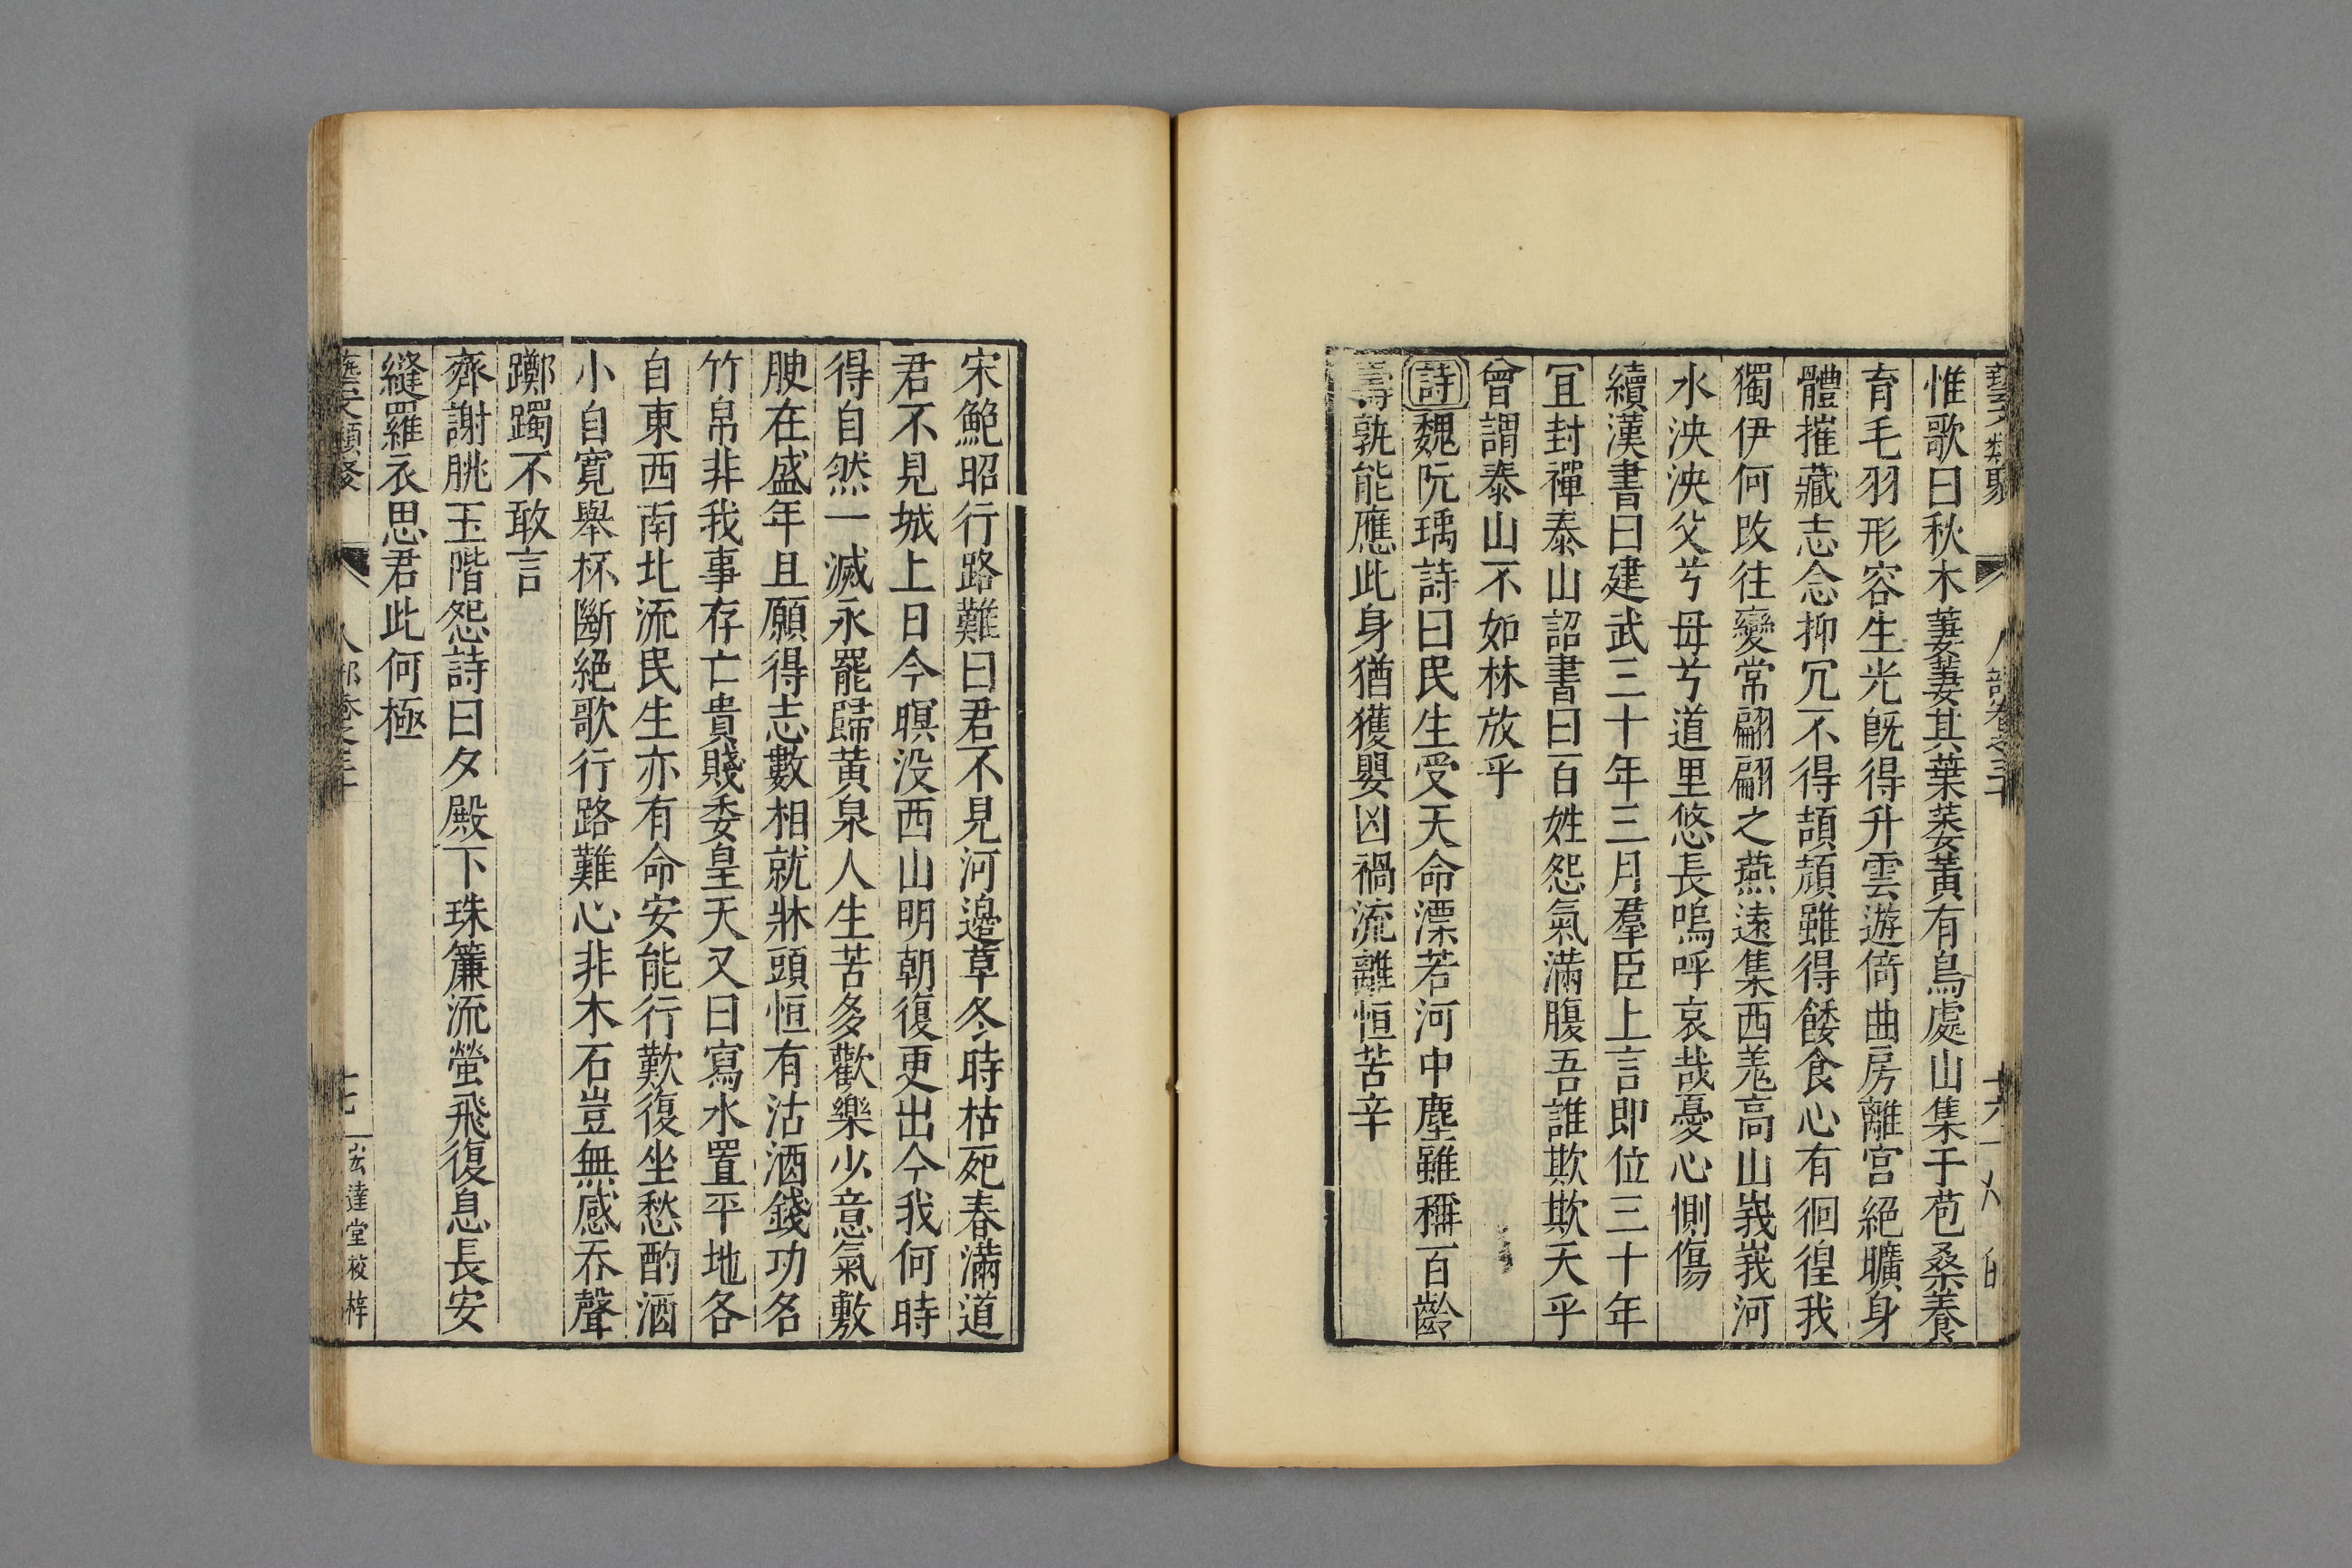 藝文類聚 人部卷之三十 十六
惟歌曰秋木萋萋其葉萎黃有鳥處山集于苞桑養
育毛羽形容生光旣得升雲遊倚曲房離宮絕曠身
體摧藏志念抑冗不得頡頏雖得餧食心有徊徨我
獨伊何改往變常翩翩之燕遠集西羗高山峩峩河
水泱泱父兮母兮道里悠長嗚呼哀哉憂心惻傷
續漢書曰建武三十年三月羣臣上言即位三十年
冝封禪泰山詔書曰百姓怨氣滿腹吾誰欺欺天乎
曾謂泰山不如林放乎
詩魏阮瑀詩曰民生受天命漂若河中塵雖稱百齡
壽孰能應此身猶獲嬰凶禍流離恒苦辛
宋鮑昭行路難曰君不見河邊草冬時枯死春滿道
君不見城上日今暝没西山明朝復更出今我何時
得自然一滅永罷歸黄泉人生苦多歡樂少意氣敷
腴在盛年且願得志數相就牀頭恒有沽酒錢功名
竹帛非我事存亡貴賤委皇天又曰寫水置平地各
自東西南北流民生亦有命安能行歎復坐愁酌酒
小自寬舉杯斷絕歌行路難心非木石豈無感吞聲
躑躅不敢言
齊謝朓玉階怨詩曰夕殿下珠簾流螢飛復息長安
縫羅衣思君此何極
藝文類聚 人部卷之三十 十七 宏達堂校梓